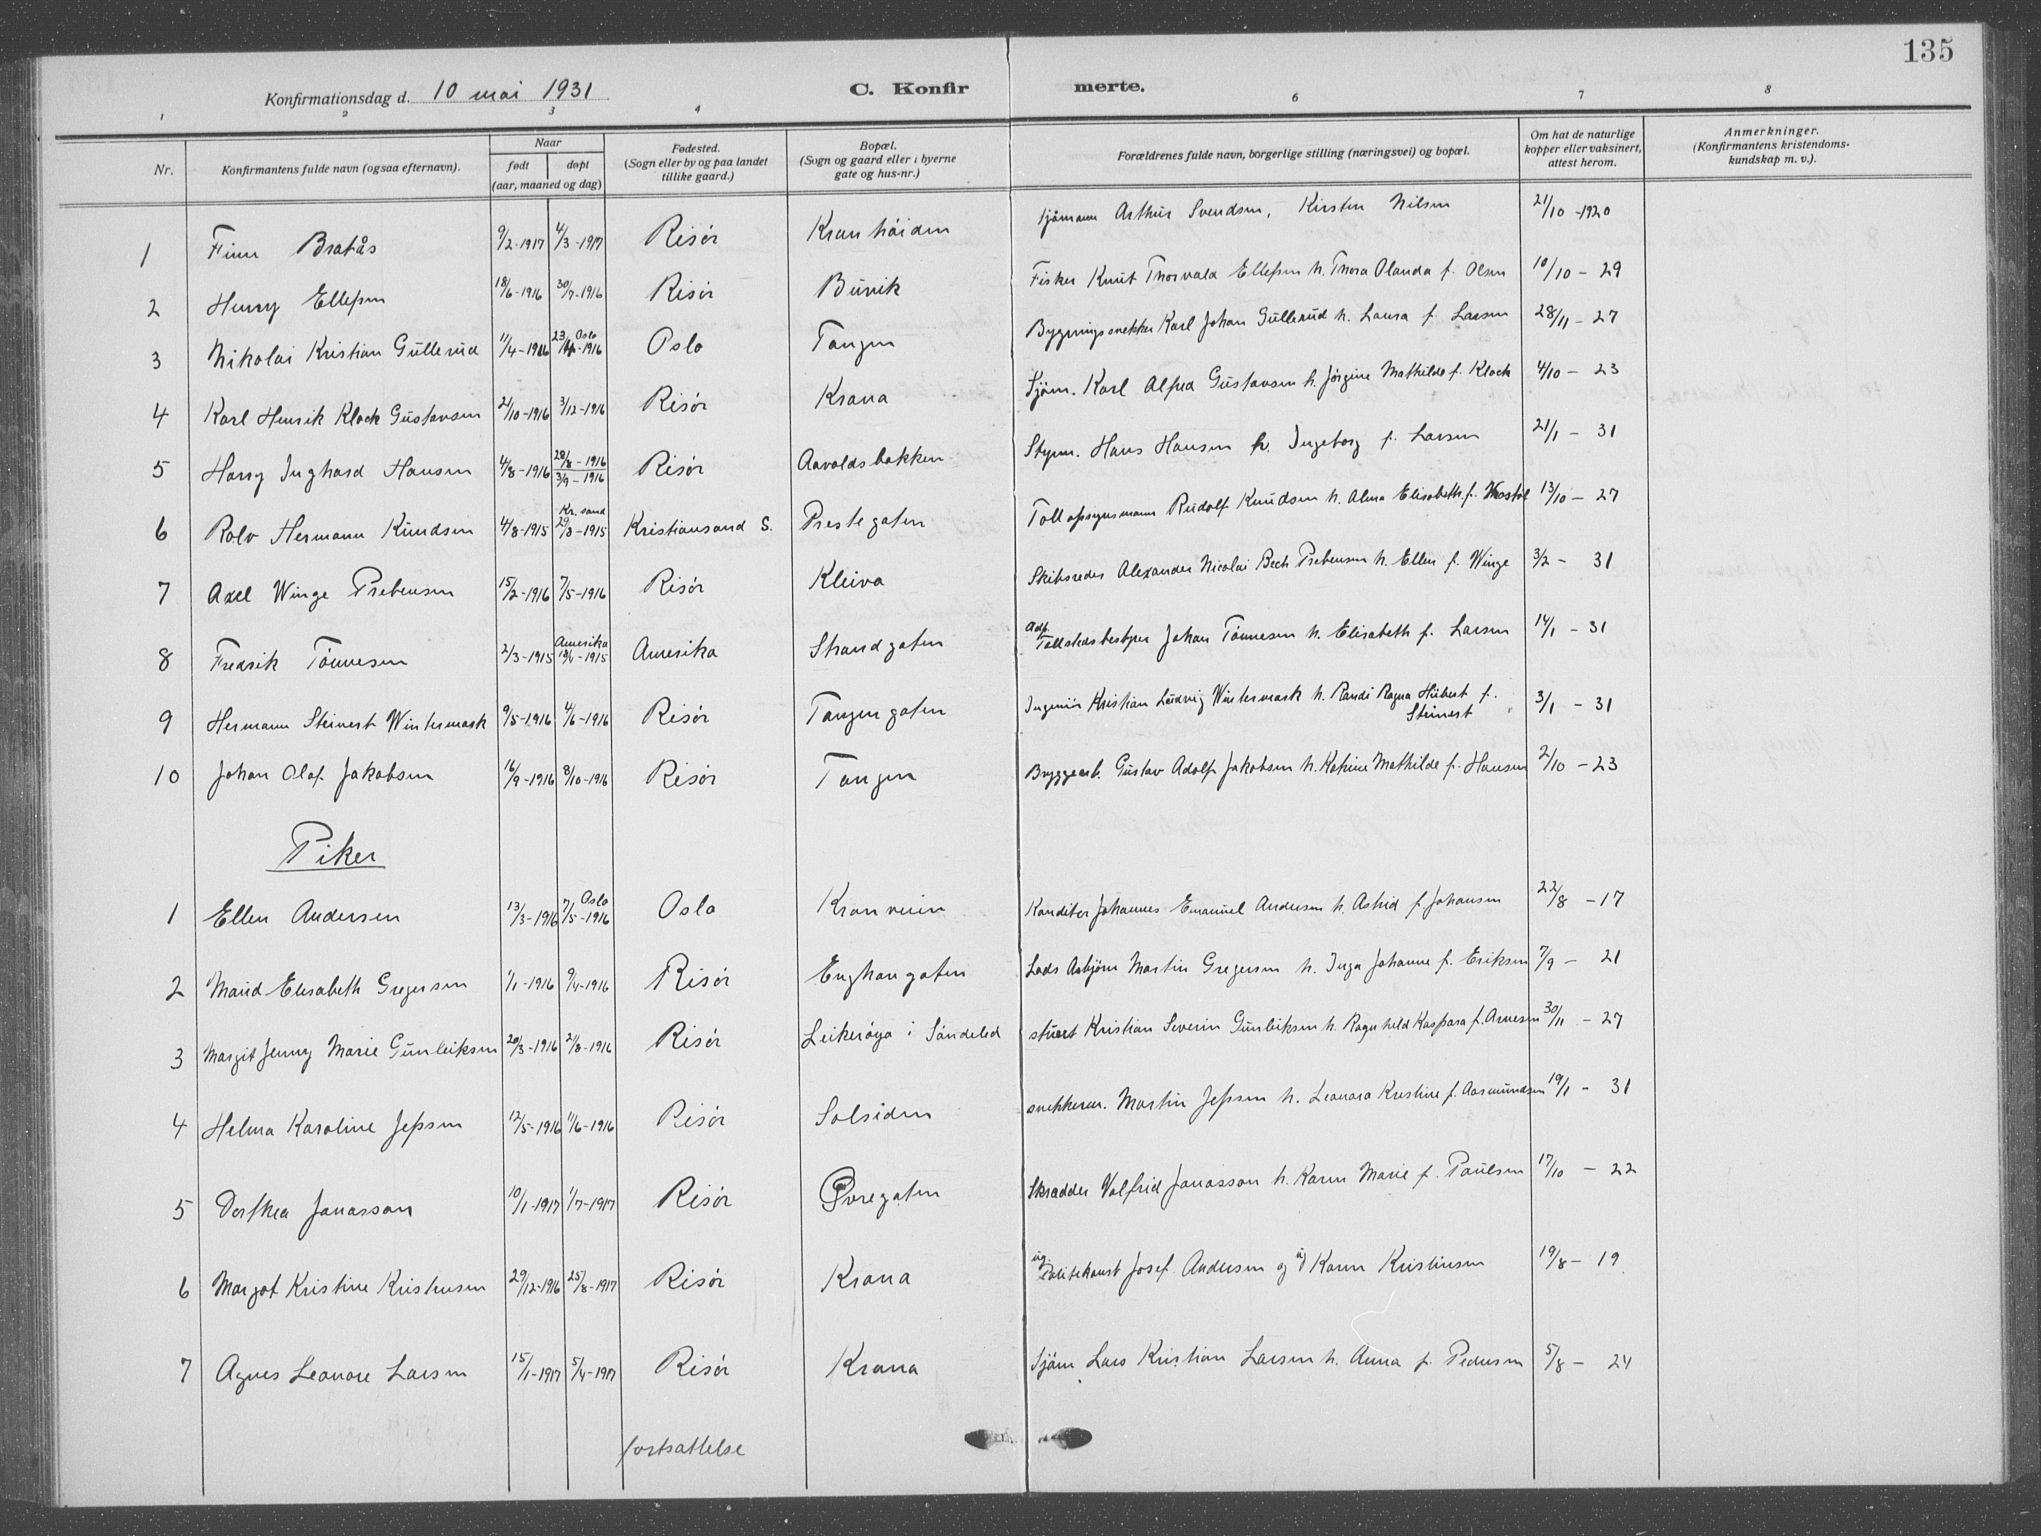 135
Konfirmationsdag d. 10 mai 1931 C. Konfirmerte.
1 2 3 4 6 7 8
Nr. Konfirmantens fulde navn (ogsaa efternavn). Naar født døpt (aar, maaned og dag) Fødested. (Sogn eller by og paa landet tillike gaard.) Bopæl. (Sogn og gaard eller i byerne gate og hus-nr.) Forældrenes fulde navn, borgerlige stilling (næringsvei) og bopæl. Om hat de naturlige kopper eller vaksinert, attest herom. Anmerkninger. (Konfirmantens kristendoms-kundskap m. v.).
1 Finn Bratås 9/2-1917 4/3-1917 Risör Kranhöiden Sjömann Arthur Svendsen, Kirsten Nilsen 21/10-1920
2 Henry Ellefsen 18/6-1916 30/7-1916 Risör Buvik Fisker Knut Thorvald Ellefsen h. Thora Olanda f. Olsen 10/10-29
3 Nikolai Kristian Gullerud 11/4-1916 23/4-1916 Oslo Oslo Tangen Bygningssnekker Karl Johan Gullerud h. Laura f. Larsen 28/11-27
4 Karl Henrik Klock Gustavsen 21/10-1916 3/12-1916 Risör Krana Sjöm. Karl Alfred Gustavsen h. Jörgine Mathilde f. Klock 4/10-23
5 Harry Inghard Hansen 4/8-1916 28/8-1916 3/9-1916 Risör Aavoldsbakken Styrm. Hans Hansen h. Ingeborg f. Larsen 21/1-31
6 Rolv Hermann Knudsen 4/8-1915 Kr.sand 29/8-1915 Kristiansand S. Prestegaten Tollopsynsmann Rudolf Knudsen h. Alma Elisabeth f. 13/10-27
7 Axel Winge Prebensen 15/2-1916 7/5-1916 Risör Kleiva Skibsreder Alexander Nicolai Bech Prebensen h. Ellen f. Winge 3/2-31
8 Fredrik Tönnesen 2/3-1915 Amerika -1915 Amerika Strandgaten Adp. Tollstedsbestyrer Johan Tönnesen h. Elisabeth f. Larsen 14/1-31
9 Hermann Steinert Wintermark 9/5-1916 4/6-1916 Risör Tangengaten Ingeniör Kristian Ludvig Wintermark h. Randi Ragna Hübert f. Steinert 3/1-31
10 Johan Olaf Jakobsen 16/9-1916 8/10-1916 Risör Tangen Byggearb. Gustav Adolf Jakobsen h. Katrine Mathilde f. Hansen 2/10-23
Piker
1 Ellen Andersen 13/3-1916 7/5-1916 Oslo Oslo Kranveien Konditor Johannes Emanuel Andersen h. Astrid f. Johansen 22/8-17
2 Maud Elisabeth Gregersen 1/1-1916 9/4-1916 Risör Enghaugaten Lods Asbjörn Martin Gregersen h. Inga Johanne f. Eriksen 7/9-21
3 Margit Jenny Marie Gunleiksen 20/3-1916 2/8-1916 Risör Leikeröya i Söndeled stuert Kristian Severin Gunleiksen h. Ragnhild Kaspara f. Arnesen 30/11-27
4 Helma Karoline Jepsen 12/5-1916 11/6-1916 Risör Solsiden snekkerm. Martin Jepsen h. Leonora Kristine f. Aasmundsen 19/1-31
5 Dorthea Jonasson 10/1-1917 1/7-1917 Risör Øvregaten Skrædder Valfrid Jonasson h. Karen Marie f. Paulsen 17/10-22
6 Margot Kristine Kristensen 29/12-1916 25/8-1917 Risör Krana ug Politikonst Josef Andersen og ug Karen Kristensen 19/8-19
7 Agnes Leonore Larsen 15/1-1917 5/4-1917 Risör Krana Sjöm Lars Kristian Larsen h. Anna f. Pedersen 5/8-24
fortsattelse